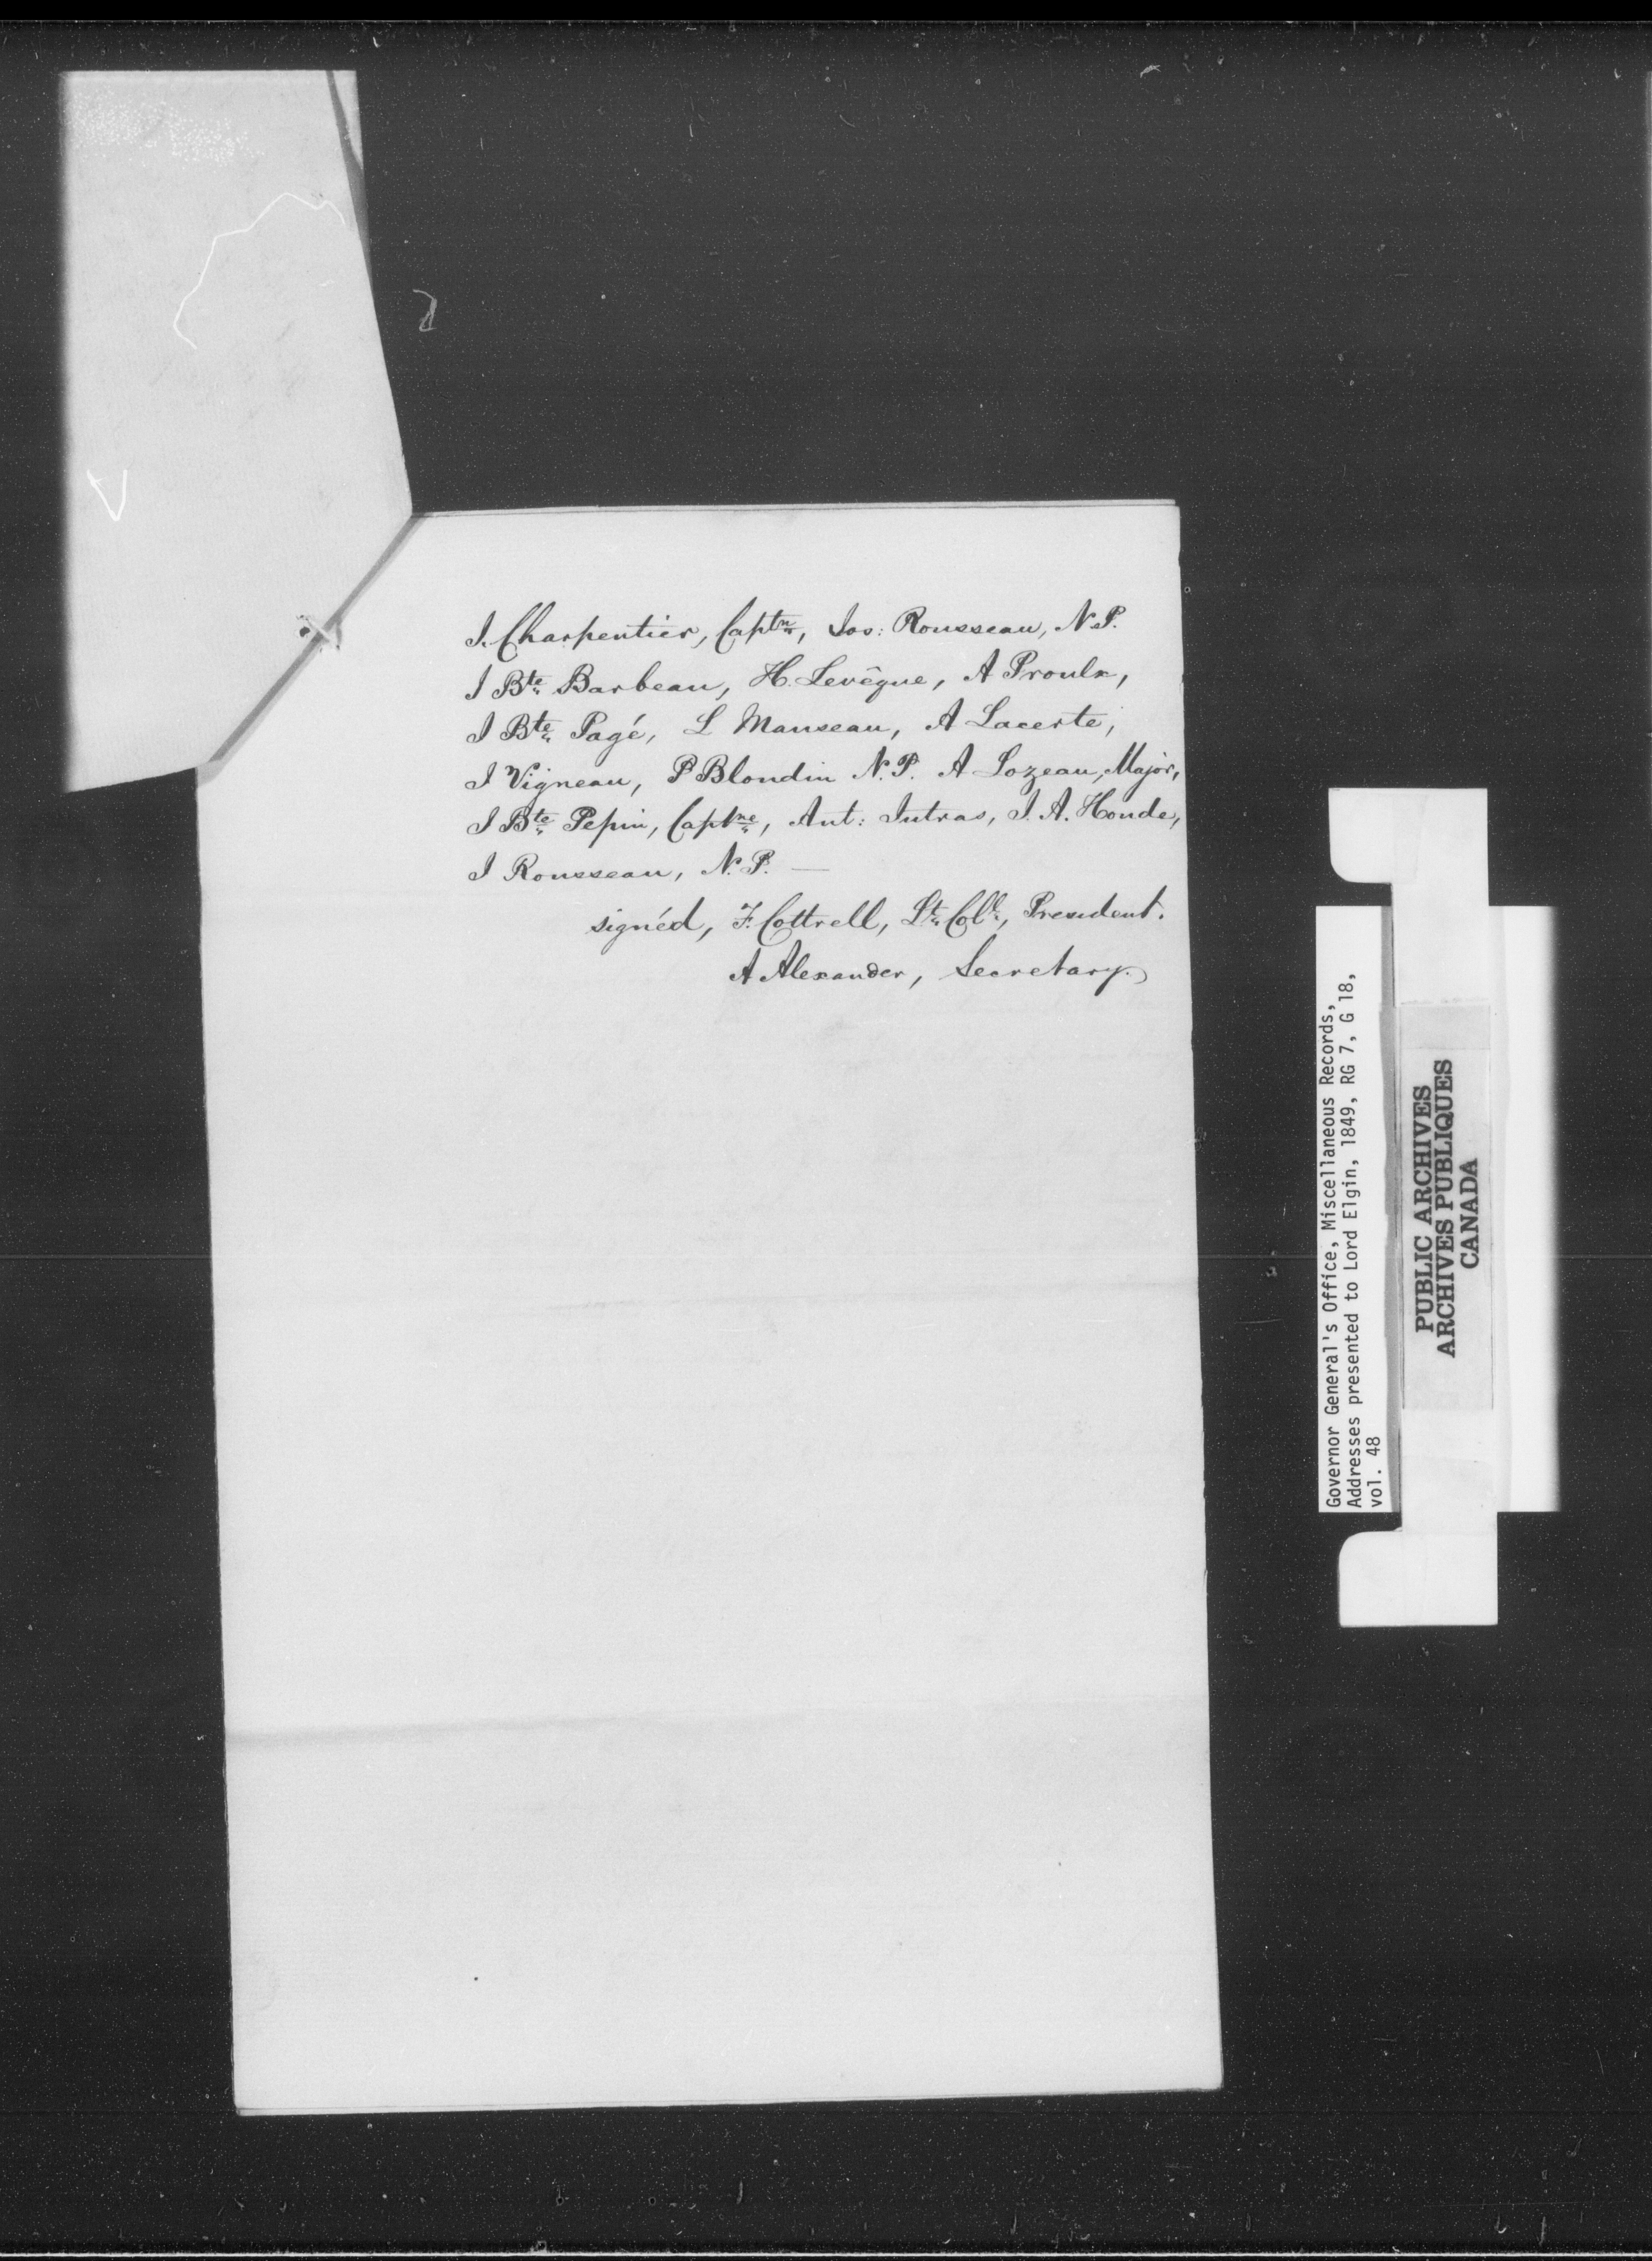 J. Charpentier, Captn, Jos: Rousseau, N.P.
J Bte Barbeau, H. Levêque, A Proulx,
J Bte Pagé, L Manseau, A Lacerte,
J Vigneau, P Blondin N.P. A Lozeau, Major,
J Bte Pepin, Captne, Ant: Jutras, J. A. Houde,
J Rousseau, N.P. —
signéd, F. Cottrell, Lt. Coll, President.
A Alexander, Secretary.
Governor General's Office, Miscellaneous Records,
Addresses presented to Lord Elgin, 1849, RG 7, G 18,
vol. 48
PUBLIC ARCHIVES
ARCHIVES PUBLIQUES
CANADA